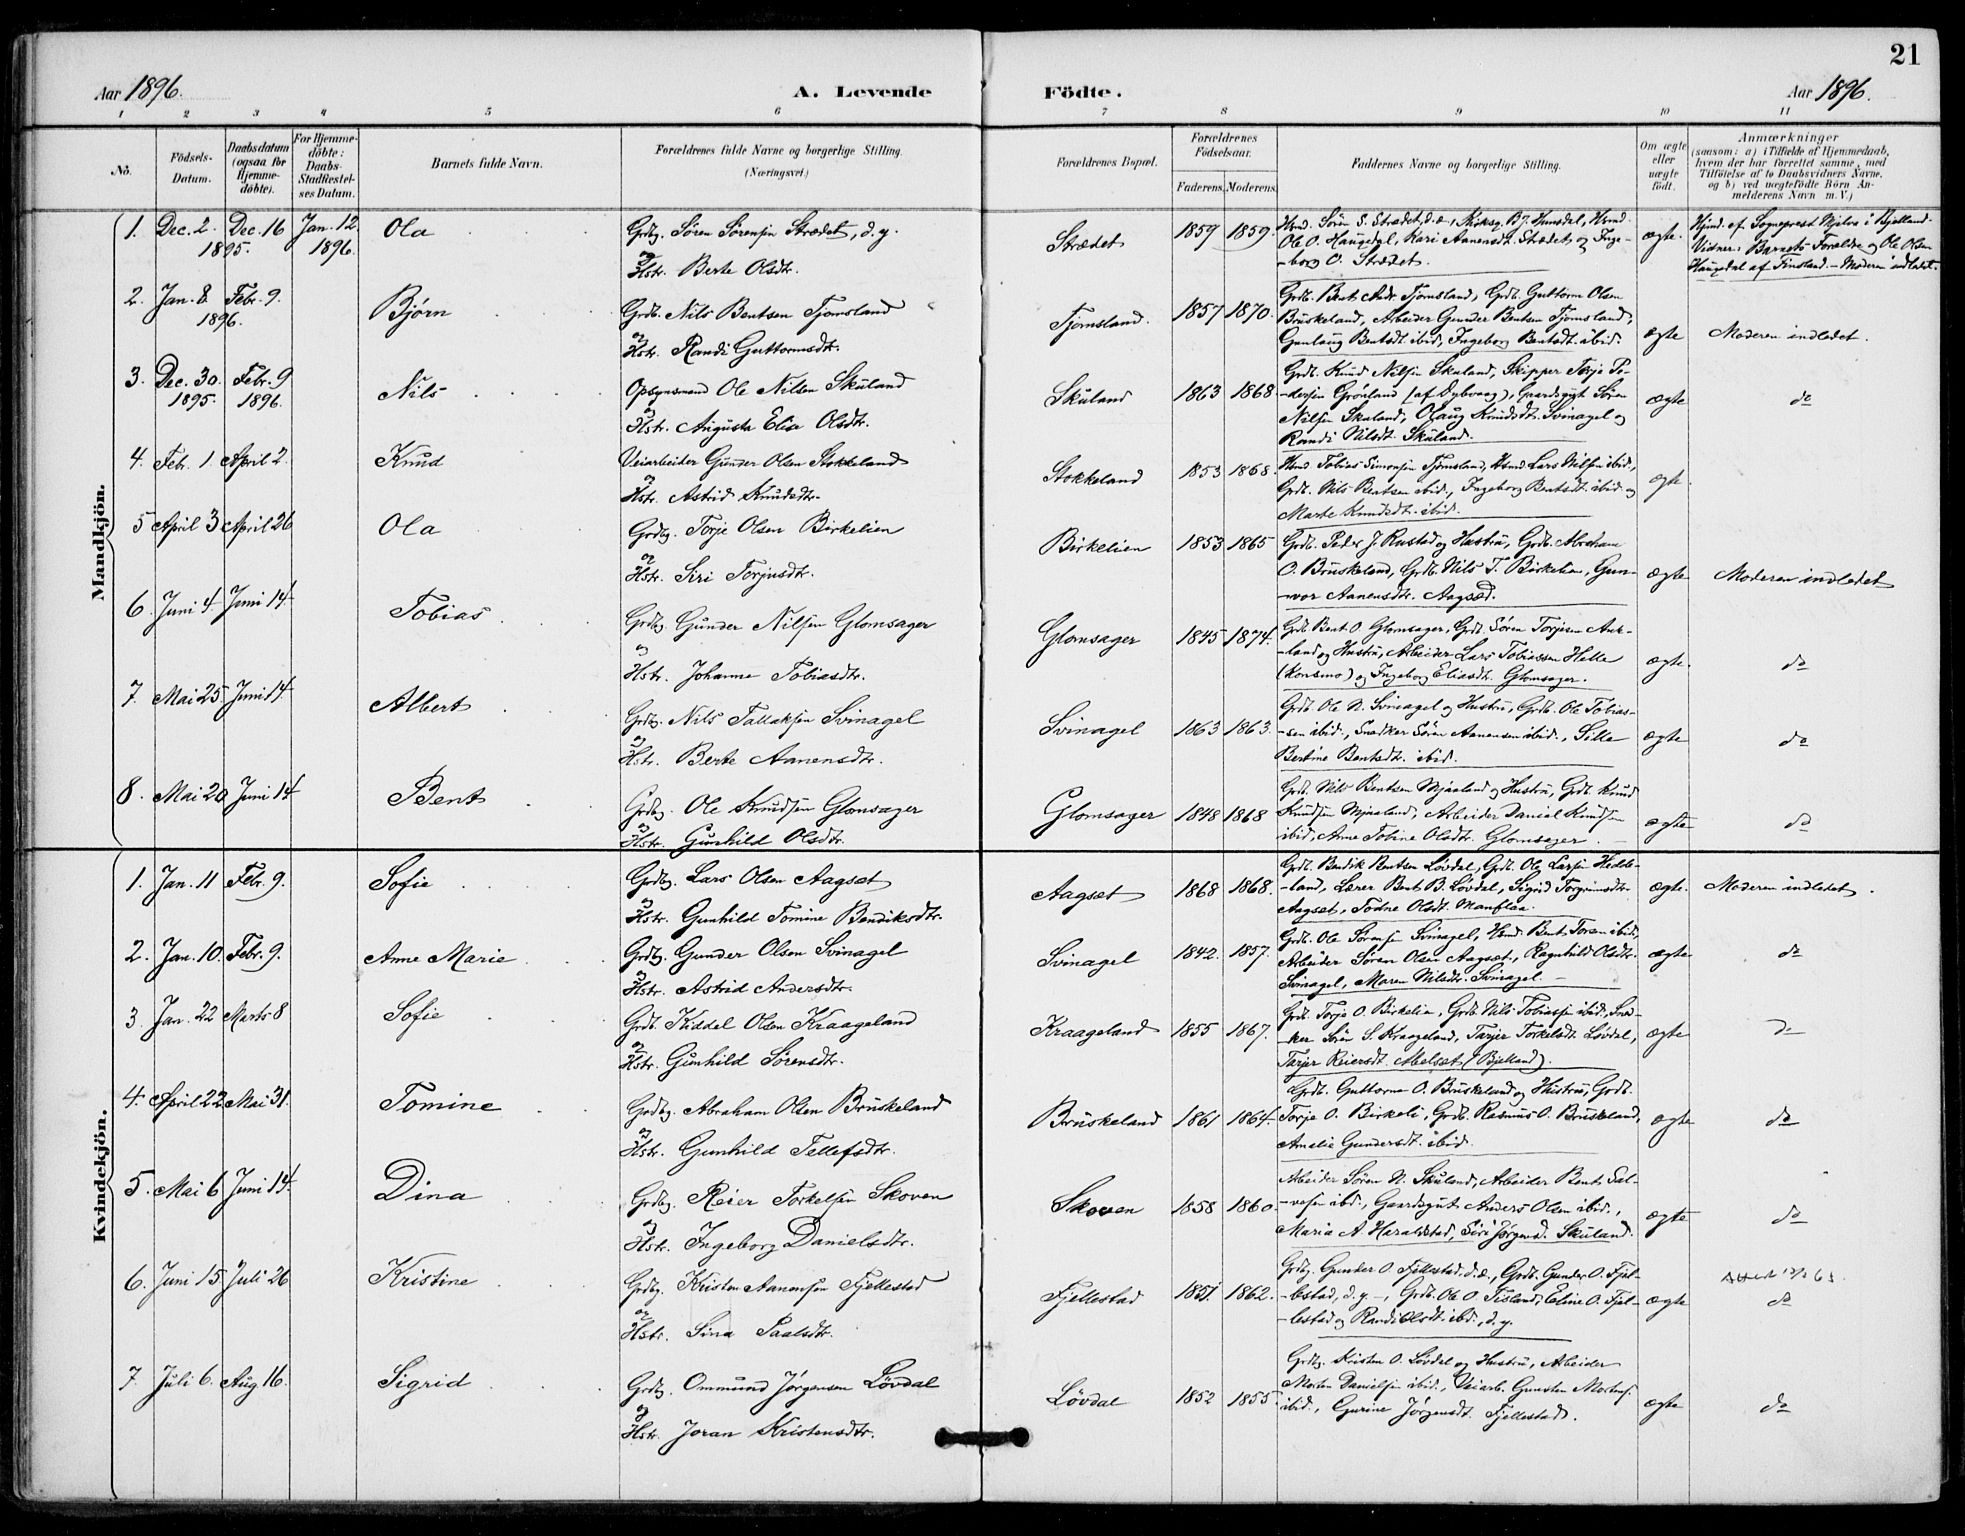 21
Aar 1896.
A. Levende Födte.
Aar 1896.
1 2 3 4 5 6 7 8 9 10 11
No.
Födsels-Datum.
Daabsdatum (ogsaa for Hjemme-döbte).
For Hjemme-döbte: Daabs-Stadfestel-ses Datum.
Barnets fulde Navn.
Forældrenes fulde Navne og borgerlige Stilling. (Næringsvei.)
Forældrenes Bopæl.
Forældrenes Födselsaar.
Faderens. Moderens.
Faddernes Navne og borgerlige Stilling.
Om ægte eller uægte födt.
Anmærkninger
(saasom: a) i Tilfælde af Hjemmedaab, hvem der har forrettet samme, med Tilföielse af to Daabsvidners Navne, og b) ved uægtefödte Börn An-melderens Navn m. V.)
Mandkjön.
1. Dec. 2. Dec. 16 Jan. 12 Ola Grdbg. Sören Sörensen Strædet, d. y.
1895. 1896.
og Hstr. Berte Olsdtr.
Strædet 1859 1859.
Hsmd. Sören S. Strædet, d. æ., Kirkesg. B. J. Hunsdal, Hsmd.
Ole O. Haugdal, Kari Aanensdt. Strædet og Inge-
-borg O. Strædet.
ægte.
Hjmd. af Sogneprest Mjelva i Bjelland.
Vidner: Barnets Forældre og Ole Olsen
Haugdal af Finsland. - Moderen indledet.
2. Jan. 8 Febr. 9. Bjørn Grdb. Nils Bentsen Tjomsland
1896.
og Hstr. Randi Guttormsdtr.
Tjomsland. 1857 1870.
Grdb. Bent Andr. Tjomsland, Grdb. Guttorm Olsen
Bruskeland, Arbeider Gunder Bentsen Tjomsland,
Gunlaug Bentsdt. ibid., Ingeborg Bentsdt. ibid.
ægte Moderen indledet.
3. Dec. 30. Febr. 9 Nils Opsynsmand Ole Nilsen Skuland
1895. 1896.
og Hstr. Augusta Elise Olsdtr.
Skuland 1863 1868.
Grdb. Knud Nilsen Skuland, Skipper Terje Pe-
-dersen Grönland (af Dybvaag), Gaardsgut Sören
Nilsen Skuland, Olaug Knudsdt. Svinagel og
Randi Nilsdt. Skuland.
ægte do
4. Feb. 1. April 2. Knud Veiarbeider Gunder Olsen Stokkeland
og Hstr. Astrid Knudsdtr.
Stokkeland 1853 1868.
Hsmd. Tobias Simonsen Tjomsland, Hsmd. Lars Nilsen ibid.,
Grdb. Nils Bentsen ibid., Ingeborg Bentsdt. ibid. og
Marte Knudsdt. ibid.
ægte.
5 April 3 April 26 Ola Grdbg. Torje Olsen Birkelien
og Hstr. Siri Torjusdtr.
Birkelien 1853 1865
Grdb. Peder J. Rustad og Hustru, Grdb. Abraham
O. Bruskeland, Grdb. Nils T. Birkelien, Gun-
-vor Aanensdtr. Aagsed.
ægte Moderen indledet
6. Juni 4. Juni 14. Tobias Grdbg. Gunder Nilsen Glomsager
og Hstr. Johanne Tobiasdtr.
Glomsager 1845 1874.
Grdb. Bent O. Glomsager, Grdb. Sören Torjesen Auk-
-land og Hustru, Arbeider Lars Tobiassen Helle
(Konsmo) og Ingeborg Eliasdt. Glomsager.
ægte. do
7. Mai 25 Juni 14 Albert Grdbg. Nils Tallaksen Svinagel
og Hstr. Berte Aanensdtr.
Svinagel 1863 1863.
Grdb. Ole N. Svinagel og Hustru, Grdb. Ole Tobias-
-sen ibid., Snedker Sören Aanensen ibid., Sille
Bertine Bentsdt. ibid.
ægte do
8. Mai 20 Juni 14 Bent Grdbg. Ole Knudsen Glomsager
og Hstr. Gunhild Olsdtr.
Glomsager 1848 1868
Grdb. Nils Bentsen Mjaaland og Hustru, Grdb. Knud
Knudsen Mjaaland, Arbeider Daniel Knudsen
ibid., Anne Tobine Olsdtr. Glomsager.
ægte do
Kvindekjön.
1. Jan. 11 Febr. 9. Sofie Grdbg. Lars Olsen Aagset
og Hstr. Gunhild Tomine Bendiksdtr.
Aagset 1868 1868.
Grdb. Bendik Bentsen Lövdal, Grdb. Ole Larsen Hedde-
-land, Lærer Bent B. Lövdal, Sigrid Torgrimsdtr.
Aagset, Todne Olsdt. Manflaa.
ægte. Moderen indledet.
2. Jan. 10. Febr. 9. Anne Marie Grdbg. Gunder Olsen Svinagel
og Hstr. Astrid Andersdtr.
Svinagel 1842. 1857.
Grdb. Ole Sörensen Svinagel, Hsmd. Bent Toresen ibid.
Arbeider Sören Olsen Aagset, Ragnhild Olsdtr.
Svinagel, Maren Nilsdtr. Svinagel
ægte do
3 Jan. 22 Marts 8 Sofie Grdb. Kiddel Olsen Kraageland
og Hstr. Gunhild Sörensdtr.
Kraageland 1855 1867.
Grdb. Torje O. Birkelien, Grdb. Nils Tobiassen ibid., Sned-
-ker Sören S. Kraageland, Tarjer Torkelsdt. Lövdal,
Tarjer Reiersdt. Melset (Bjelland).
ægte do
4. April 22 Mai 31. Tomine Grdbg. Abraham Olsen Bruskeland
og Hstr. Gunhild Tellefsdtr.
Bruskeland 1861 1864.
Grdb. Guttorm O. Bruskeland og Hustru, Grdb.
Torje O. Birkeli, Grdb. Rasmus O. Bruskeland,
Amalie Gundersdt. ibid.
ægte do
5. Mai 6 Juni 14. Dina Grdbg. Reier Torkelsen Skoven
og Hstr. Ingeborg Danielsdtr.
Skoven 1858 1860.
Arbeider Sören N. Skuland, Arbeider Bent Sal-
-vesen ibid., Gaardsgut Anders Olsen ibid.,
Maria A. Haraldstad, Siri Jörgensd. Skuland.
ægte do
6. Juni 15 Juli 26 Kristine Grdbg. Kristen Aanensen Fjellestad
og Hstr. Sina Paalsdtr.
Fjellestad 1851. 1862.
Grdbg. Gunder O. Fjellestad. d. æ., Grdb. Gunder O. Fjel-
-lestad, d. y., Grdb. Ole O. Tisland, Eline O. Fjel-
-lestad og Randi Olsdt. ibid., d. y.
ægte do
7. Juli 6. Aug 16. Sigrid Grdbg. Ommund Jørgensen Lövdal
og Hstr. Joran Kristensdtr.
Lövdal 1852 1855.
Grdbg. Kristen O. Lövdal og Hustru, Arbeider
Morten Danielsen ibid., Veiarb. Gunsten Mortens.
ibid., Gurine Jørgensdt. Fjellestad.
ægte do